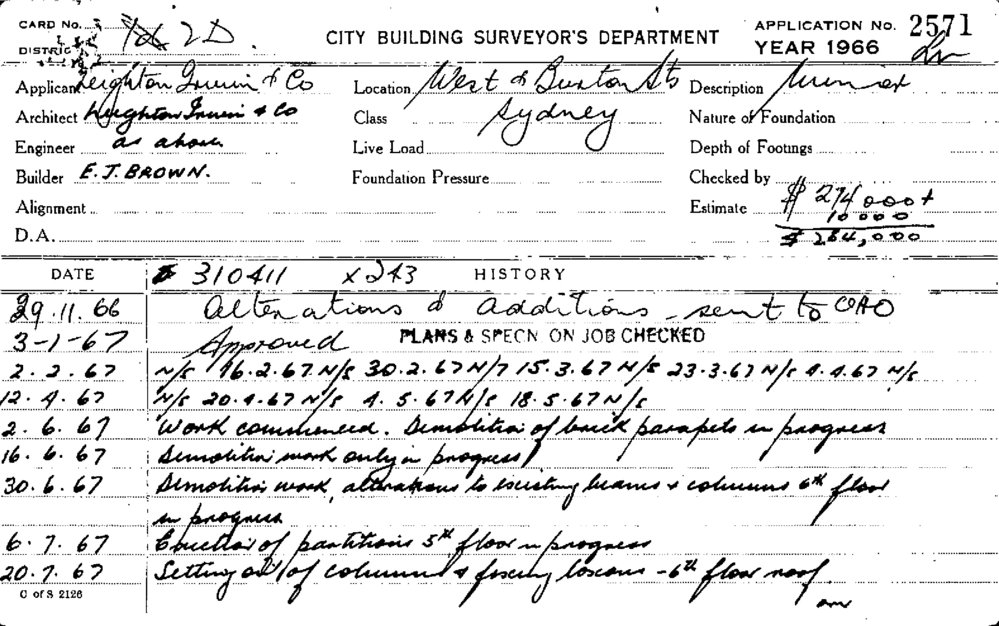 CARD No. 3
DISTRIC 2D
CITY BUILDING SURVEYOR'S DEPARTMENT
APPLICATION No. 2571
YEAR 1966
Applicant Leighton Irwin & Co
Location West & Burton Sts
Description
Architect Leighton Irwin & Co
Class Sydney
Nature of Foundation
Engineer as above
Live Load
Depth of Footings
Builder E. J. BROWN.
Foundation Pressure
Checked by
Alignment
Estimate $ 274 000 +
10 000
D.A.
$ 284,000
DATE
310411 x243
HISTORY
29.11.66 Alterations & additions - sent to
3-1-67 Approved PLANS & SPECN ON JOB CHECKED
2.2.67 N/S 16.2.67 N/S 30.2.67 N/7 15.3.67 N/S 23.3.67 N/S 4.4.67 N/S
12.4.67 N/S 20.4.67 N/S 4.5.67 N/S 18.5.67 N/S
2.6.67 Work commenced. Demolition of brick parapets in progress
16.6.67 Demolition work only in progress
30.6.67 Demolition work, alterations to existing beams & columns 6th floor
in progress
6.7.67 Erection of partitions 5th floor in progress
20.7.67 Setting out of columns & fixing - 6th floor roof.
C of S 2126